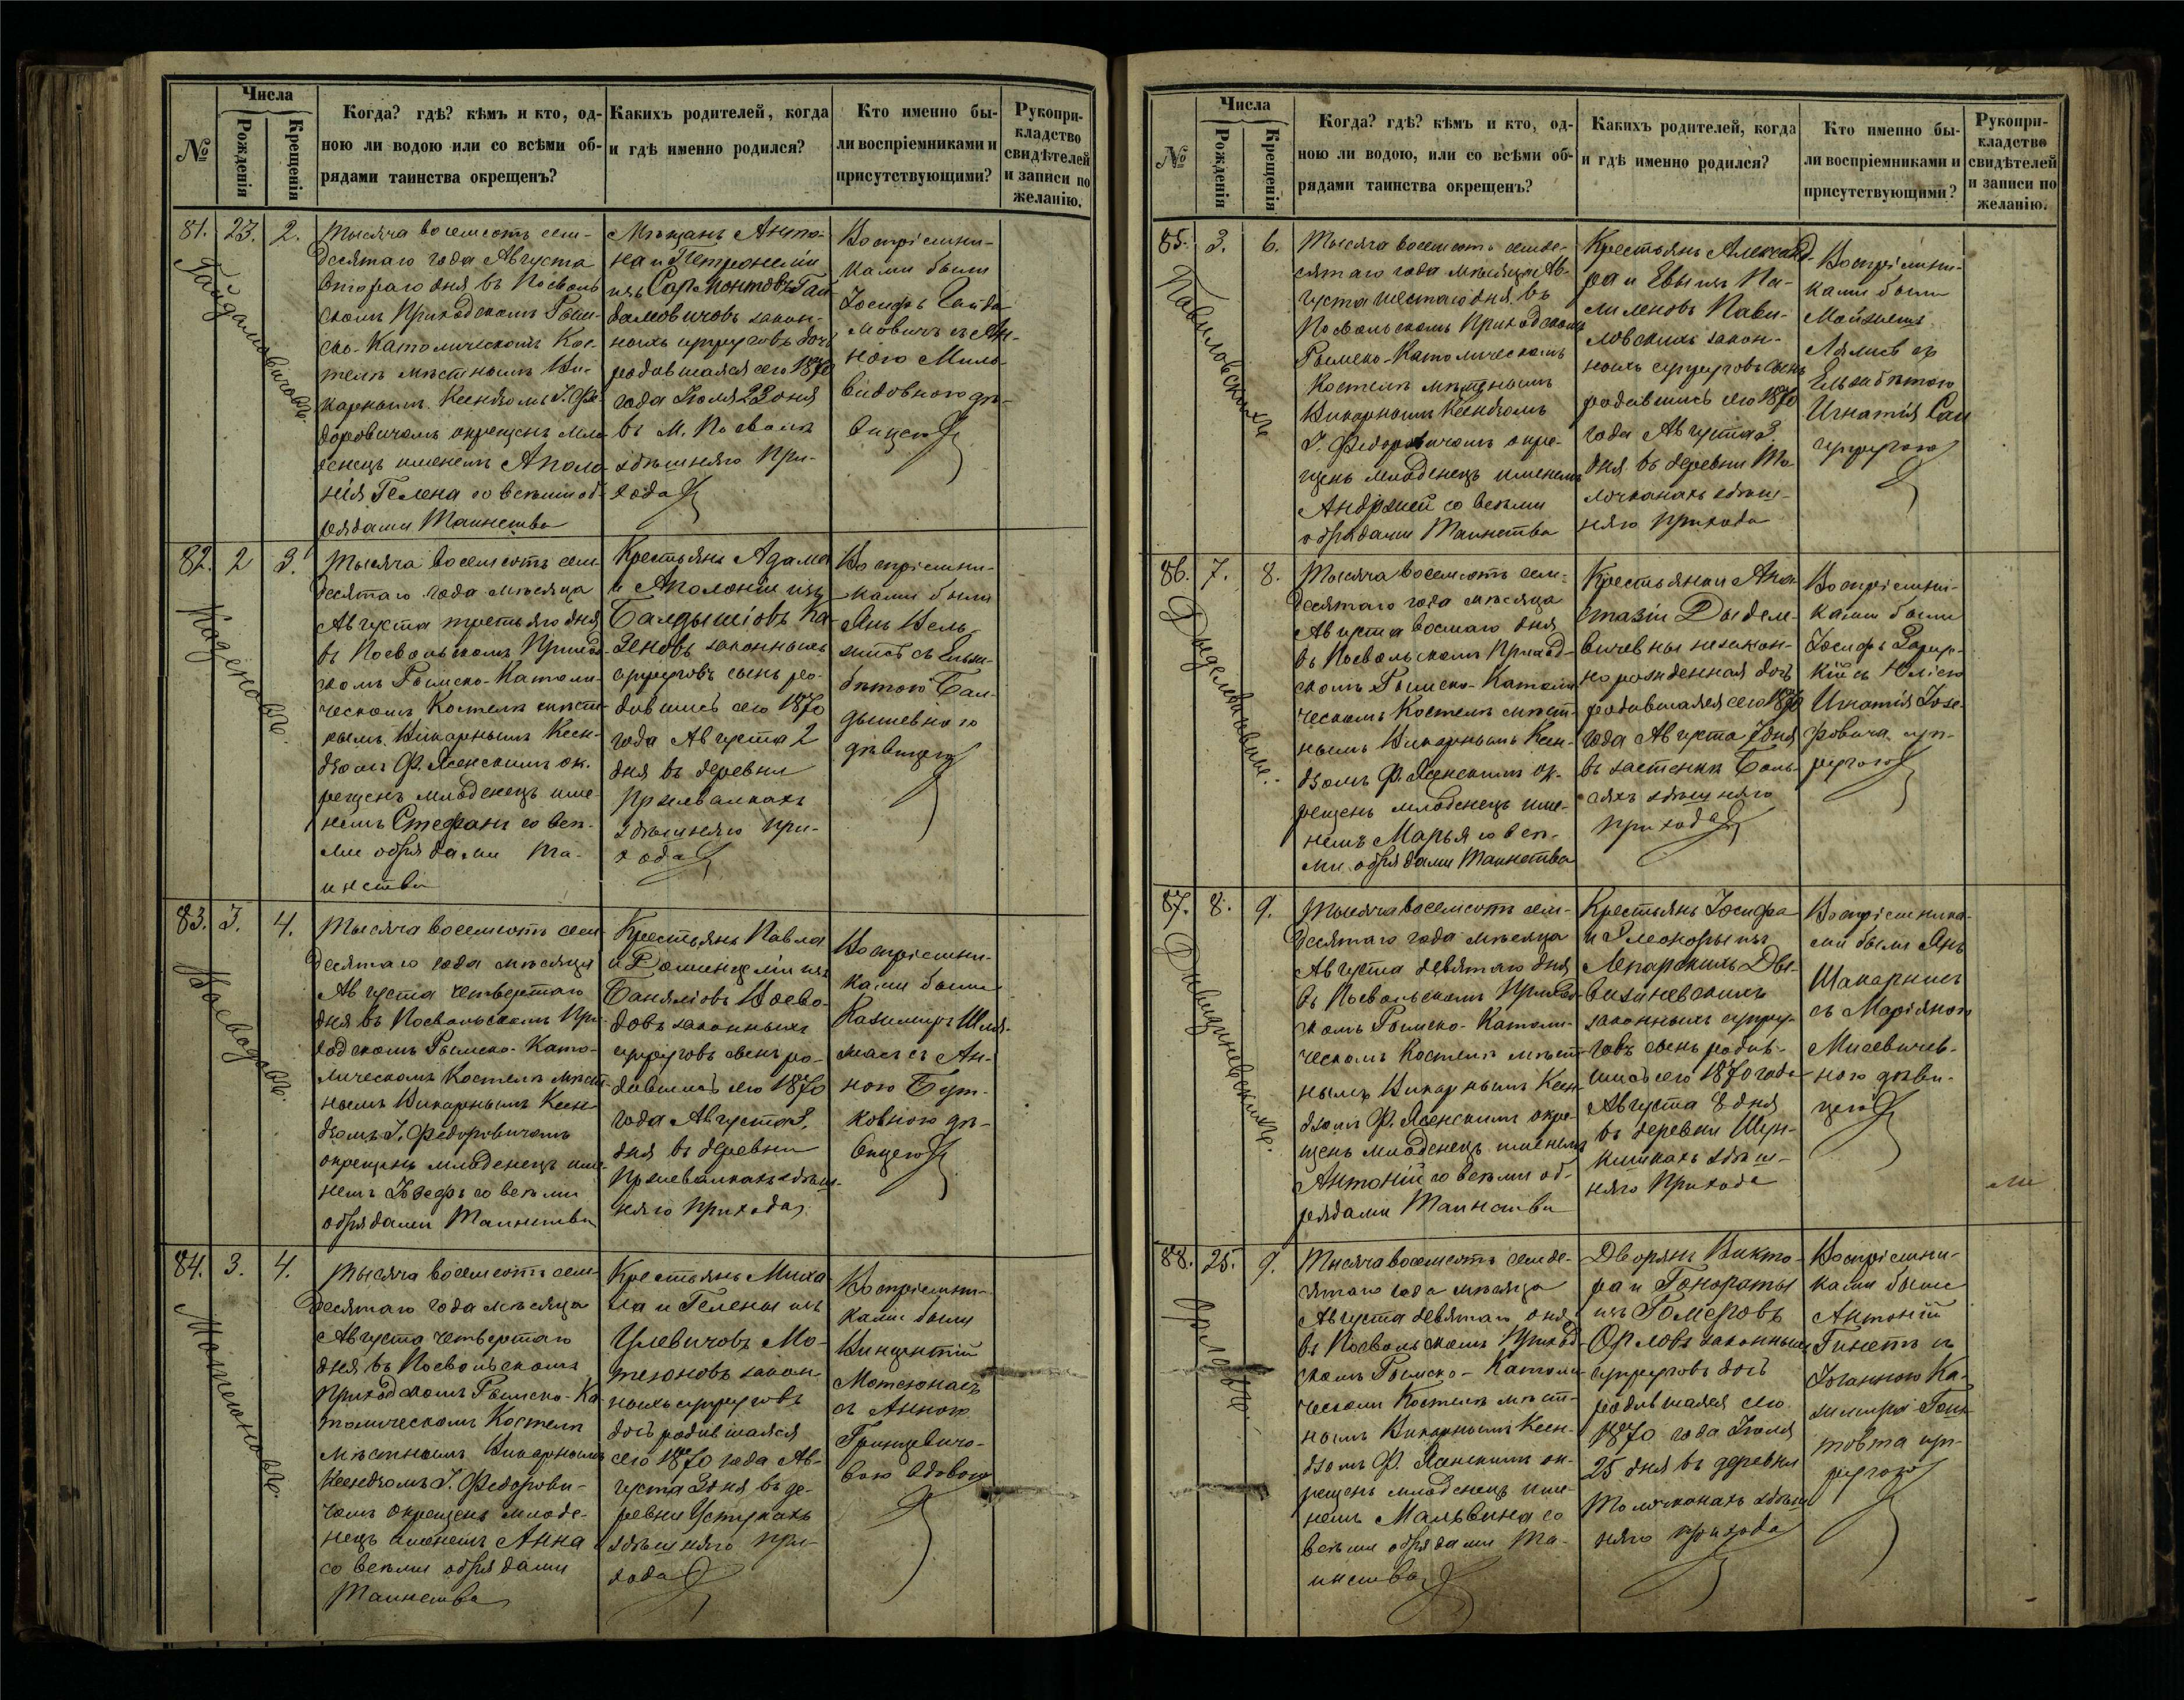 №
Числа
Рожденія
Крещенія
Когда? гдѣ? кѣмъ и кто, од-
ною ли водою или со всѣми об-
рядами таинства окрещенъ?
Какихъ родителей, когда
и гдѣ именно родился?
Кто именно бы-
ли воспріемниками и
присутствующими?
Рукопри-
кладство
свидѣтелей
и записи по
желанію.
81. 23. 2.
Гайдамовичовъ.
Тысяча восемсотъ сем-
десятаго года Августа
втораго дня въ Посволь
скомъ Приходскомъ Рим-
ско-Католическомъ Кос-
телѣ мѣстнымъ Ви-
карнымъ Ксендзомъ І. Фе-
доровичомъ окрещенъ мла
денецъ именемъ Аполо-
нія Гелена со всѣми об-
рядами Таинства
Мѣщанъ Анто-
на и Петронели
изъ Гай-
дамовичовъ закон-
ныхъ супруговъ дочь
родившаяся сего 1870
года Іюля 23 дня
въ М. Посволѣ
здѣшняго При-
хода
Воспріемни-
ками были
Іосифъ Гайда
мовичъ съ Ан-
ною Миль-
видовною дѣ-
вицею
82. 2 3.
Казеновъ.
Тысяча восемсотъ сем
десятаго года мѣсяца
Августа третьяго дня
въ Посвольскомъ Приход
скомъ Римско-Католи-
ческомъ Костелѣ мѣст
нымъ Викарнымъ Ксен-
дзомъ Ф. Ясенскимъ ок-
рещенъ младенецъ име-
немъ Стефанъ со всѣ-
ми обрядами Та-
инства
Крестьянъ Адама
и Аполоніи изъ
Балдышіовъ Ка-
зеновъ законныхъ
супруговъ сынъ ро-
дившись сего 1870
года Августа 2
дня въ деревни
Пршевалкахъ
здѣшняго При-
хода
Воспріемни-
ками были
Янъ
съ Ельза-
бѣтою Бал-
дышевною
дѣвицею
83. 3. 4.
Воеводовъ.
Тысяча восемсотъ сем
десятаго года мѣсяца
Августа четвертаго
дня въ Посвольскомъ При
ходскомъ Римско-Като-
лическомъ Костелѣ мѣст
нымъ Викарнымъ Ксен-
дзомъ І. Федоровичомъ
окрещенъ младенецъ име
немъ Іозефъ со всѣми
обрядами Таинства
Крестьянъ Павла
и Доминцеліи изъ
Банялювъ Воево-
довъ законныхъ
супруговъ сынъ ро-
дившись сего 1870
года Августа 3.
дня въ деревни
Пршевалкахъ здѣш-
няго Прихода
Воспріемни-
ками были
Казимиръ
съ Ан-
ною Бут-
ковною дѣ-
вицею
84. 3. 4.
Мотеюновъ.
Тысяча восемсотъ сем
десятаго года мѣсяца
Августа четвертаго
дня въ Посвольскомъ
Приходскомъ Римско-Ка
толическомъ Костелѣ
мѣстнымъ Викарнымъ
Ксендзомъ І. Федорови-
чомъ окрещенъ младе-
нецъ именемъ Анна
со всѣми обрядами
Таинства
Крестьянъ Миха-
ла и Гелены изъ
Улевичовъ Мо-
теюновъ закон-
ныхъ супруговъ
дочь родившаяся
сего 1870 года Ав-
густа 3 дня въ де-
ревни Устукахъ
здѣшняго При-
хода
Воспріемни-
ками были
Винцентій
Мотеюнасъ
съ Анною
Гринцевичо-
вою вдовою
№
Числа
Рожденія
Крещенія
Когда? гдѣ? кѣмъ и кто, од-
ною ли водою, или со всѣми об-
рядами таинства окрещенъ?
Какихъ родителей, когда
и гдѣ именно родился?
Кто именно бы-
ли воспріемниками и
присутствующими?
Рукопри-
кладство
свидѣтелей
и записи по
желанію.
85. 3. 6.
Павиловскихъ
Тысяча восемсотъ семде-
сятаго года мѣсяца Ав-
густа шестаго дня въ
Посвольскомъ Приходскомъ
Римско-Католическомъ
Костелѣ мѣстнымъ
Викарнымъ Ксендзомъ
І. Федоровичомъ окре-
щенъ младенецъ именемъ
Андржей со всѣми
обрядами Таинства
Крестьянъ Александ-
ра и Евы изъ Ка-
лиленовъ Пави-
ловскихъ закон-
ныхъ супруговъ сынъ
родившись сего 1870
года Августа 3.
дня въ деревни То-
лочканахъ здѣш-
няго Прихода
Воспріемни-
ками были
Мойжешъ
съ
Ельзабѣтою
Игнатія
супругою
86. 7. 8.
Дыделевичовны.
Тысяча восемсотъ сем-
десятаго года мѣсяца
Августа восмаго дня
въ Посвольскомъ Приход-
скомъ Римско-Католи
ческомъ Костелѣ мѣст-
нымъ Викарнымъ Ксен-
дзомъ Ф. Ясенскимъ ок-
рещенъ младенецъ име-
немъ Марья со всѣ-
ми обрядами Таинства
Крестьянки Ана-
стазіи Дыделе-
вичевны незакон-
норожденная дочь
родившаяся сего 1870
года Августа 7 дня
въ застенкѣ
здѣшняго
Прихода
Воспріемни-
ками были
Іосифъ
съ Юліею
Игнатія Іозе-
фовича суп-
ругою
87. 8. 9.
Тысяча восемсотъ сем-
десятаго года мѣсяца
Августа девятаго дня
въ Посвольскомъ Приход-
скомъ Римско-Католи-
ческомъ Костелѣ мѣст
нымъ Викарнымъ Ксен-
дзомъ Ф. Ясенскимъ окре-
щенъ младенецъ именемъ
Антоній со всѣми об-
рядами Таинства
Крестьянъ Іосифа
и Элеоноры изъ
Лепарскихъ Дви-
визиневскихъ
законныхъ супру-
говъ сынъ родив-
шись сего 1870 года
Августа 8 дня
въ деревни Шун-
кишкахъ здѣш-
няго Прихода
Воспріемника-
ми были Янъ
Шакарнисъ
съ Маріяною
Мисевичев-
ною дѣви-
цею
88. 25. 9.
Орловъ.
Тысяча восемсотъ семде-
сятаго года мѣсяца
Августа девятаго дня
въ Посвольскомъ Приход-
скомъ Римско-Католи
ческомъ Костелѣ мѣст-
нымъ Викарнымъ Ксен-
дзомъ Ф. Ясенскимъ ок-
рещенъ младенецъ име-
немъ Мальвина со
всѣми обрядами Та-
инства
Дворянъ Викто-
ра и Гонораты
изъ Гомеровъ
Орловъ законныхъ
супруговъ дочь
родившаяся сего
1870 года Іюля
25 дня въ деревни
Толочканахъ здѣш
няго прихода
Воспріемни-
ками были
Антоній
Гинетъ съ
Іоанною Ка-
зимира Гон-
товта суп-
ругою